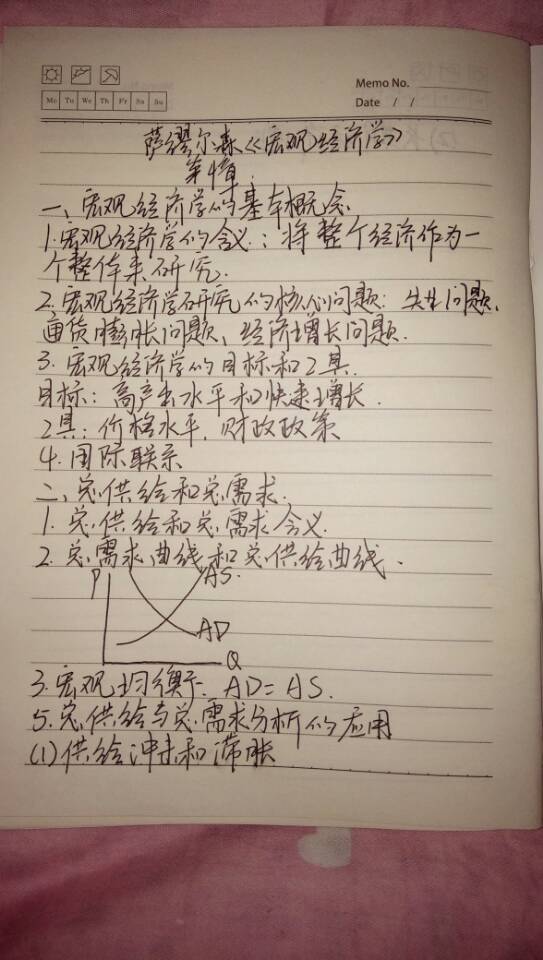 Memo No.
Mo Tu We Th Fr Sa Su
Date / /
萨缪尔森《宏观经济学》
第4章.
一、宏观经济学的基本概念.
1.宏观经济学的含义:将整个经济作为一
个整体来研究.
2.宏观经济学研究的核心问题:失业问题、
通货膨胀问题、经济增长问题.
3.宏观经济学的目标和工具.
目标:高产出水平和快速增长.
工具:价格水平.财政政策
4.国际联系
二、总供给和总需求.
1.总供给和总需求含义.
2.总需求曲线和总供给曲线.
P
AS.
AD
Q
3.宏观均衡. AD=AS.
5.总供给与总需求分析的应用
(1)供给冲击和滞胀